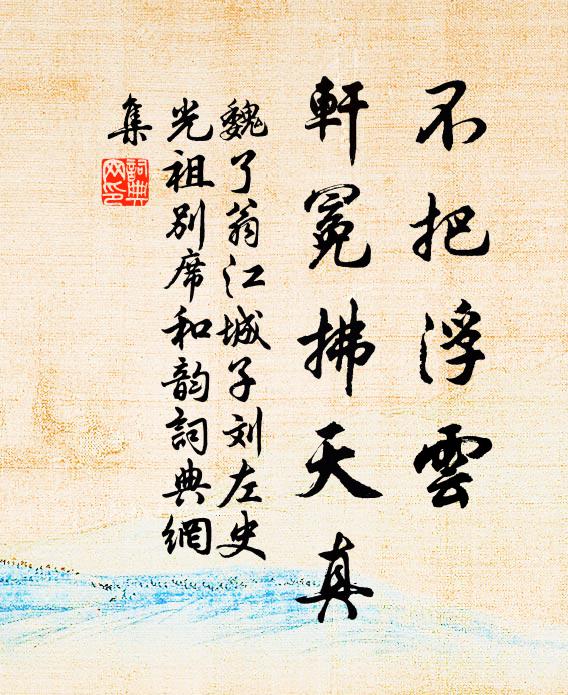 不把浮雲
軒冕拂天真
魏了翁江城子刘左史
光祖别席和韵詞典網
集
詞典網印